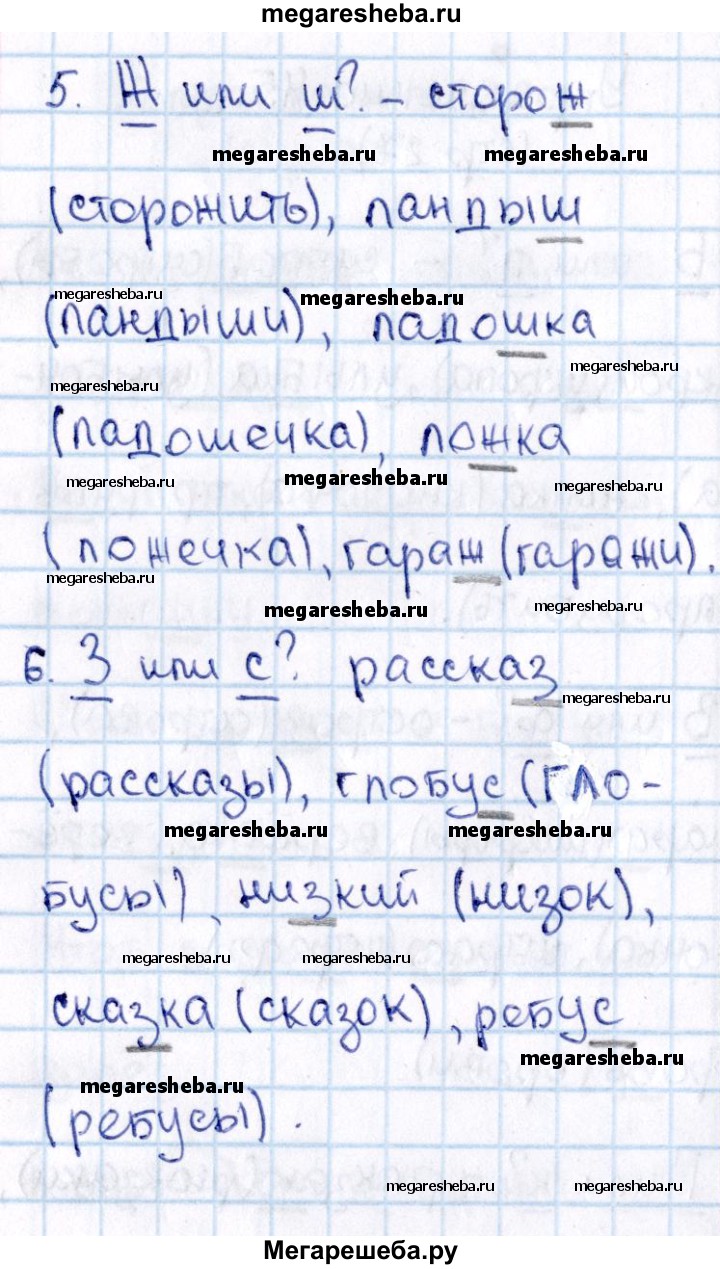 megaresheba.ru
5. Ж или ш? - сторож
megaresheba.ru megaresheba.ru
(сторожить), ландыш
megaresheba.ru megaresheba.ru
(ландыши), ладошка
megaresheba.ru megaresheba.ru
(ладошечка), ложка
megaresheba.ru megaresheba.ru megaresheba.ru
(ложечка), гараж (гаражи).
megaresheba.ru megaresheba.ru megaresheba.ru
6. З или с? рассказ
megaresheba.ru
(рассказы), глобус (гло-
megaresheba.ru megaresheba.ru
бусы), низкий (низок),
megaresheba.ru megaresheba.ru
сказка (сказок), ребус
megaresheba.ru megaresheba.ru
(ребусы).
megaresheba.ru megaresheba.ru
Мегарешеба.ру